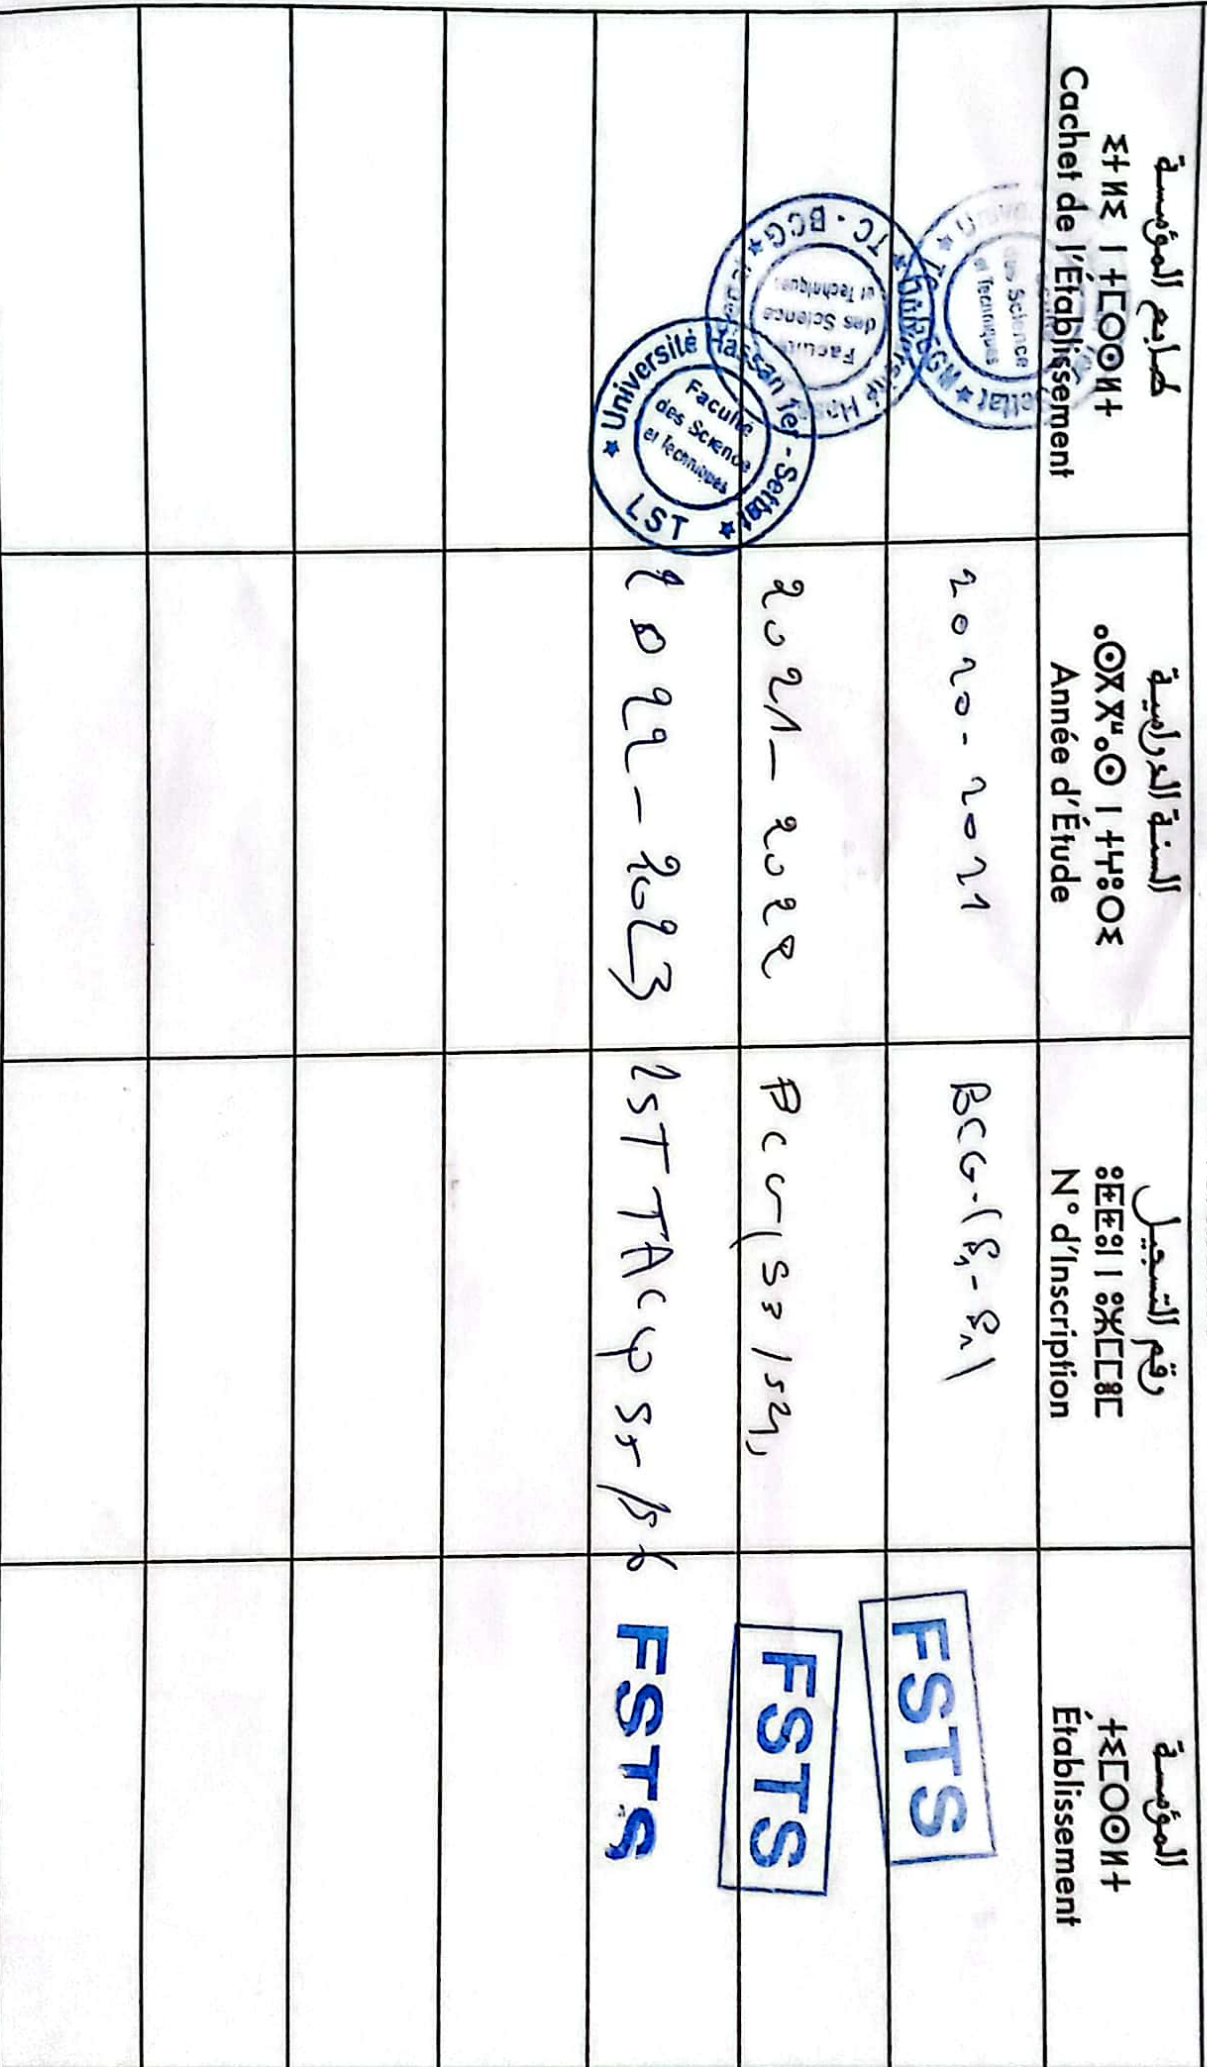 طابع المؤسسة
ⵉⵜⵍⵉ ⵏ ⵜⵎⵙⵙⵍⵜ
Cachet de l'Établissement
السنة الدراسية
ⴰⵙⴳⴳⵯⴰⵙ ⵏ ⵜⵖⵓⵔⵉ
Année d'Étude
رقم التسجيل
ⵓⵟⵟⵓⵏ ⵏ ⵓⵣⵎⵎⴻⵎ
N° d'Inscription
المؤسسة
ⵜⵉⵎⵙⵙⵍⵜ
Établissement
des Science
et Techniques
2020-2021
BCG-(S1-S2)
FSTS
TC - BCG
Faculté
des Science
et Techniques
2021-2022
BCG (S3/S4)
FSTS
Université Hassan 1er - Settat
LST
Faculté
des Science
et Techniques
2022-2023
LST TACQ S5/S6
FSTS